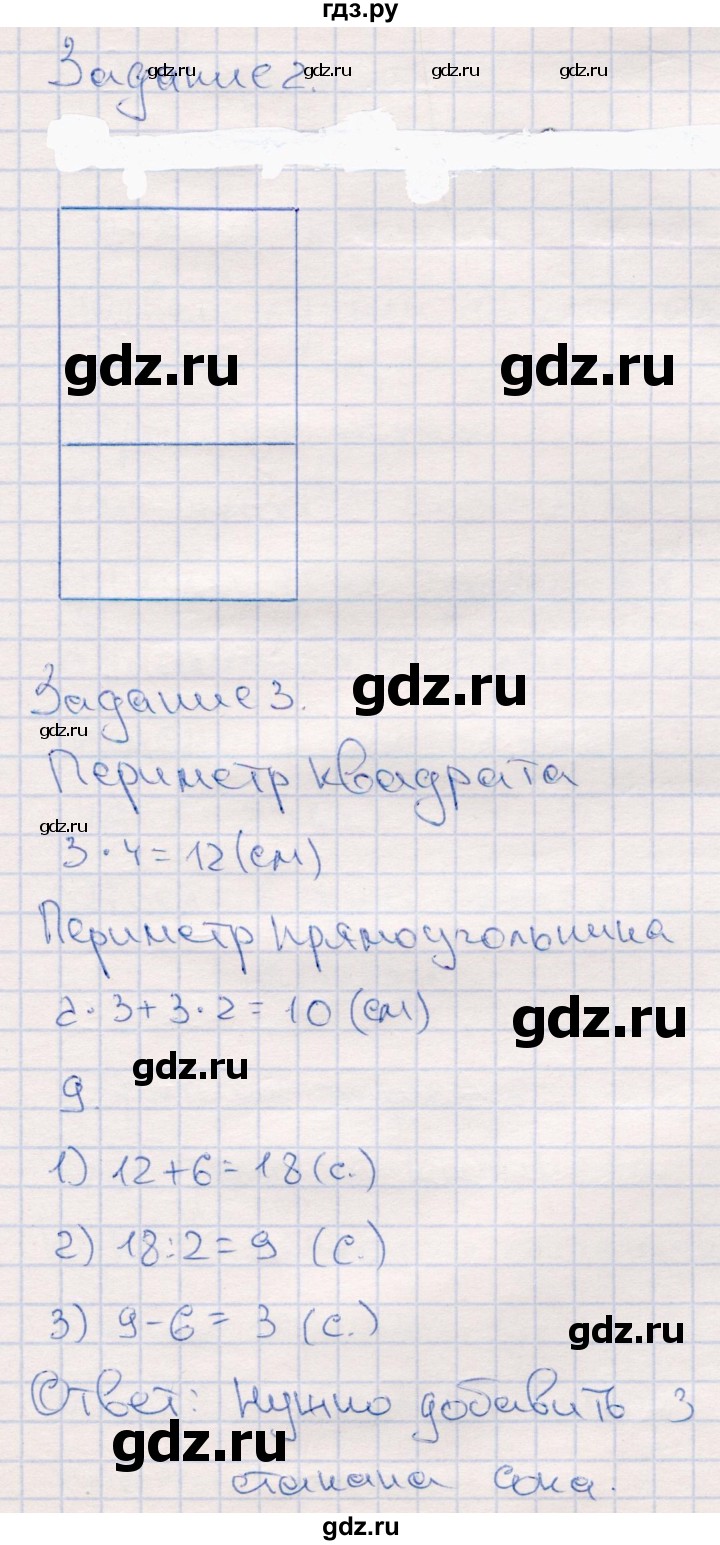 гдз.ру
Задание 2.
gdz.ru gdz.ru gdz.ru gdz.ru
gdz.ru gdz.ru
Задание 3.
gdz.ru
gdz.ru
Периметр квадрата
gdz.ru
3 · 4 = 12 (см)
Периметр прямоугольника
2 · 3 + 3 · 2 = 10 (см)
gdz.ru
gdz.ru
9.
1) 12 + 6 = 18 (с.)
2) 18 : 2 = 9 (с.)
3) 9 - 6 = 3 (с.)
gdz.ru
Ответ: нужно добавить 3
gdz.ru
стакана сока.
gdz.ru